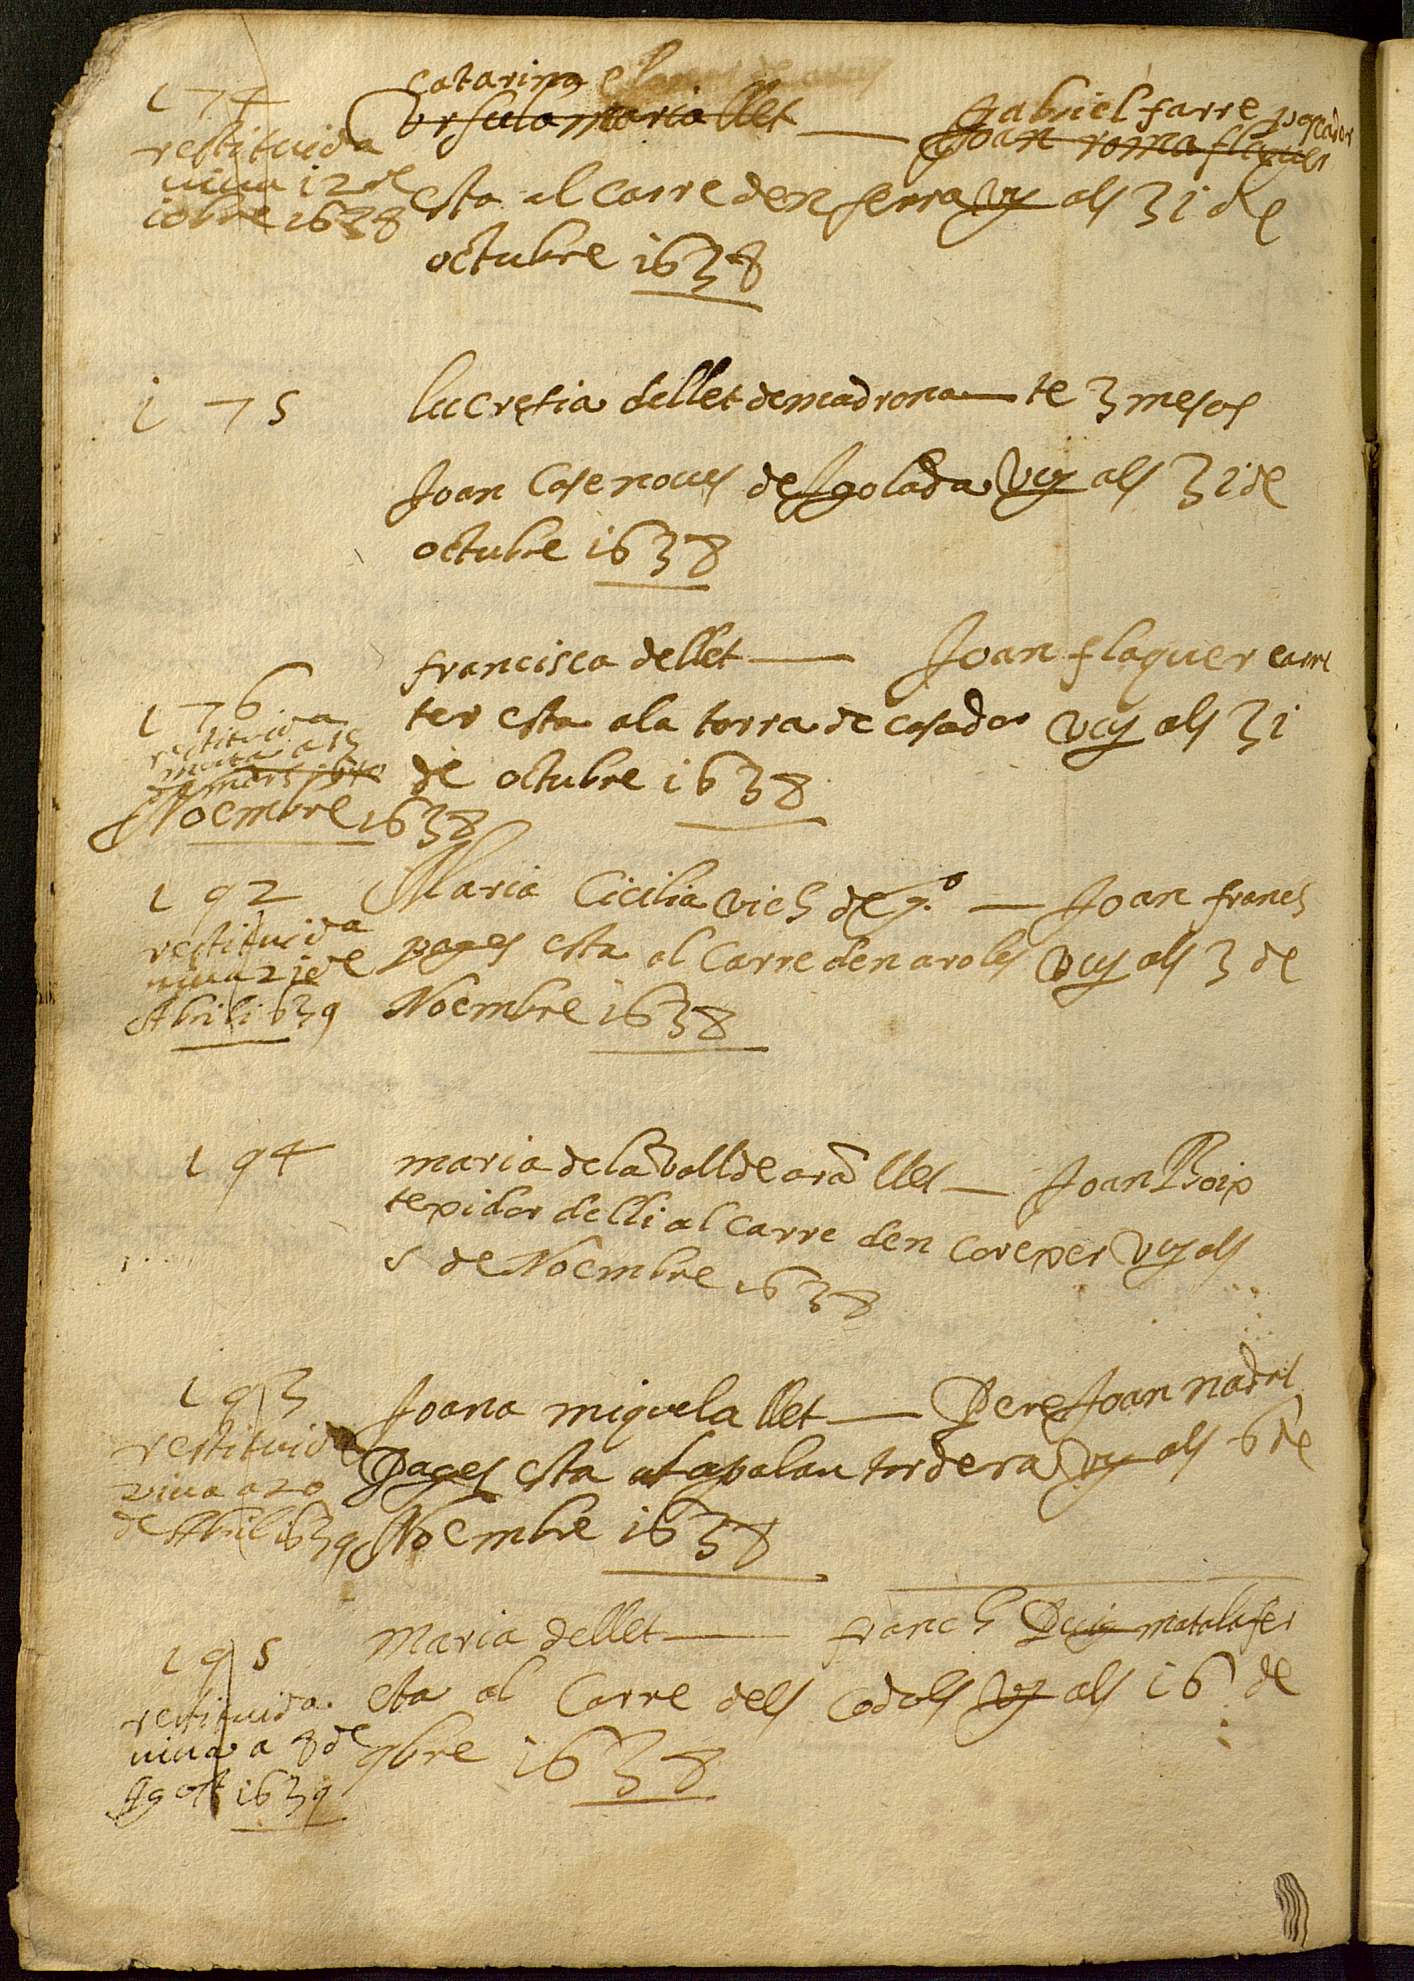 174
restituida
viva 12 de
10bre 1638
catarina
Ursula maria llet — Gabriel farre
Joan roma flaquer
esta al carre den serra vuy als 31 de
octubre 1638
175
lucresia dellet de madrona — te 3 mesos
Joan Casenoves de Igolada vuy als 31 de
octubre 1638
176
restituida
morta a 15
Noembre 1638
francisca dellet — Joan flaquer carre
ter esta a la torra de casador vuy als 31
de octubre 1638
192
restituida
viva 21 de
Abril 1639
Maria Cicilia vich de p.º — Joan franch
pages esta al Carre den aroles vuy als 3 de
Noembre 1638
194
maria de la vall de arã llet — Joan Boix
texidor de lli al carre den Carexer vuy als
5 de Noembre 1638
193
restituida
viva a 20
de Abril 1639
Joana miquela llet — Pere Joan nadal
Pages esta a palau tordera vuy als 6 de
Noembre 1638
195
restituida
viva a 8 de
Agost 1639
maria dellet — franch Puig matalafer
esta al Carre dels Codols vuy als 16 de
9bre 1638